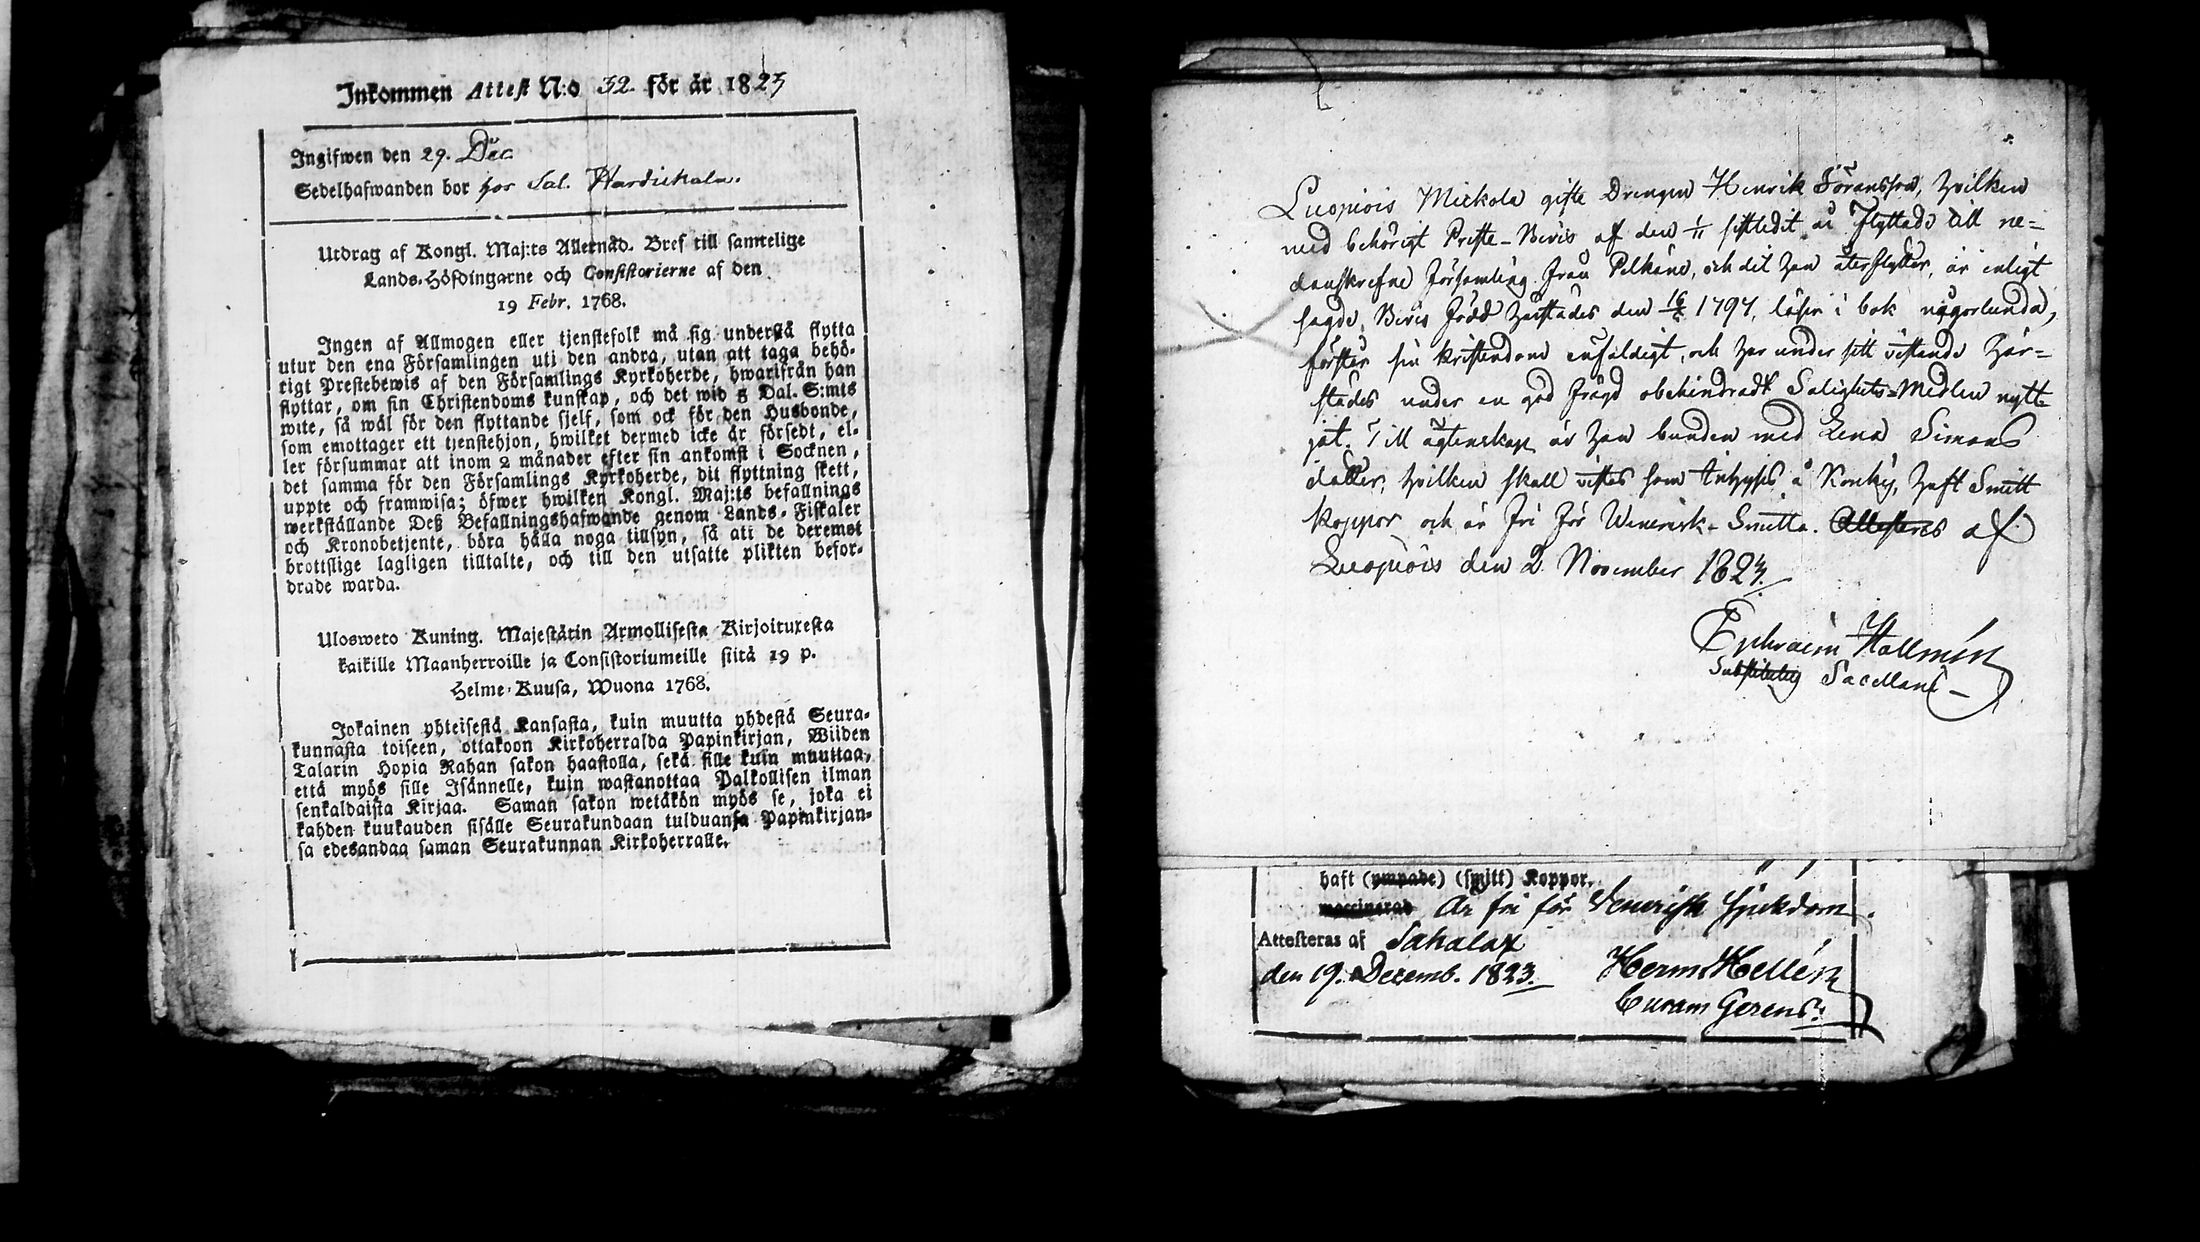 Inkommen Attest N:o 32. för år 1823
Ingifwen den 29. Dec.
Sedelhafwanden bor hos Sal.
Utdrag af Kongl. Maj:ts Allernåd. Bref till samtelige
Lands-Höfdingarne och Consistorierne af den
19 Febr. 1768.
Ingen af Allmogen eller tjenstefolk må sig understå flytta
utur den ena Församlingen uti den andra, utan att taga behö-
rigt Prestebewis af den Församlings Kyrkoherde, hwarifrån han
flyttar, om sin Christendoms kunskap, och det wid 5 Dal. S:mts
wite, så wäl för den flyttande sjelf, som ock för den Husbonde,
som emottager ett tjenstehjon, hwilket dermed icke är försedt, el-
ler försummar att inom 2 månader efter sin ankomst i Socknen,
det samma för den Församlings Kyrkoherde, dit flyttning skett,
uppte och framwisa; öfwer hwilken Kongl. Maj:ts befallnings
werkställande Deß Befallningshafwande genom Lands-Fiskaler
och Kronobetjente, böra hålla noga tillsyn, så att de deremot
brottslige lagligen tilltalte, och till den utsatte plikten befor-
drade warda.
Ulosweto Kuning. Majestätin Armollisesta Kirjoituxesta
kaikille Maanherroille ja Consistoriumeille siitä 19 p.
Helme-Kuusa, Wuona 1768.
Jokainen yhteisestä Kansasta, kuin muutta yhdestä Seura-
kunnasta toiseen, ottakoon Kirkoherralda Papinkirjan, Wiiden
Talarin Hopia Rahan sakon haastolla, sekä sille kuin muuttaa,
että myös sille Isännelle, kuin wastanottaa Palkollisen ilman
senkaldaista Kirjaa. Saman sakon wetäkön myös se, joka ei
kahden kuukauden sisälle Seurakundaan tulduansa Papinkirjan-
sa edesandaa saman Seurakunnan Kirkoherralle.
Luopiois Mickola gifte Drengen Henrik Göransson, hvilken
med behörigt Preste-Bevis af den 1/11 sistledit år flyttade till ne-
danskrefne församling från Pelkäne, och dit han återflyttar, är enligt
sagde Bevis född härstädes den 1797, läser i bok någorlunda,
förstår sin kristendom enfaldigt, och har under sitt vistande här-
städes under en god frägd obehindradt Salighets-Medlen nytt-
jat. Till ägtenskap är han bunden med Lena Simons
dotter, hvilken skall vistas som å haft Smitt
Koppor och är fri för Venerisk-Smitta. Attesteras af
Luopiois den 2 November 1823.
Ephraim Hallmén
Sacellani
haft (ympade) (smitt) Koppor.
waccinerad Är fri för Venerisk sjukdom.
Attesteras af Sahalax
den 19. Decemb. 1823. Herm. Hellén
Curam Gerens.